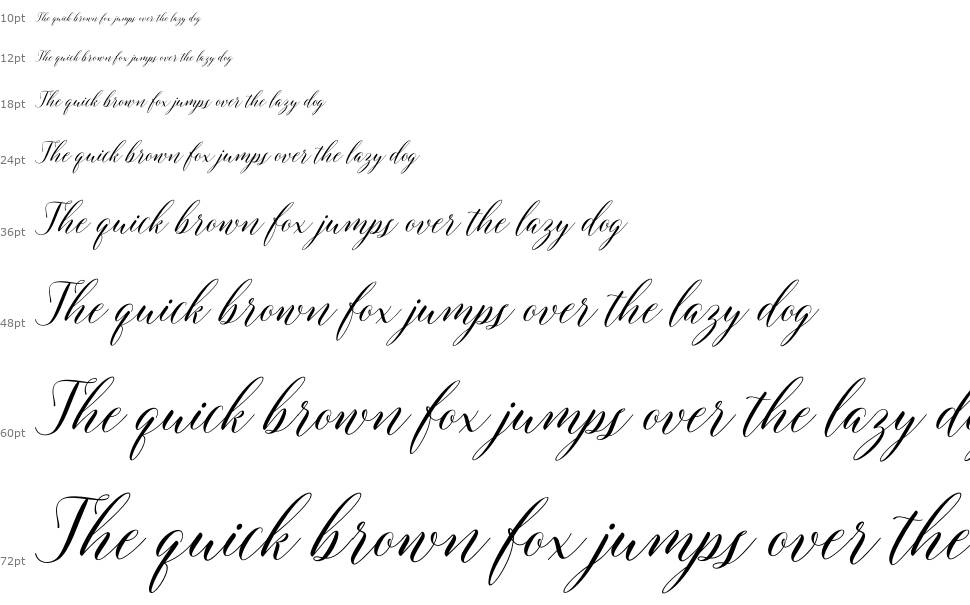 10pt The quick brown fox jumps over the lazy dog
12pt The quick brown fox jumps over the lazy dog
18pt The quick brown fox jumps over the lazy dog
24pt The quick brown fox jumps over the lazy dog
36pt The quick brown fox jumps over the lazy dog
48pt The quick brown fox jumps over the lazy dog
60pt The quick brown fox jumps over the lazy do
72pt The quick brown fox jumps over the